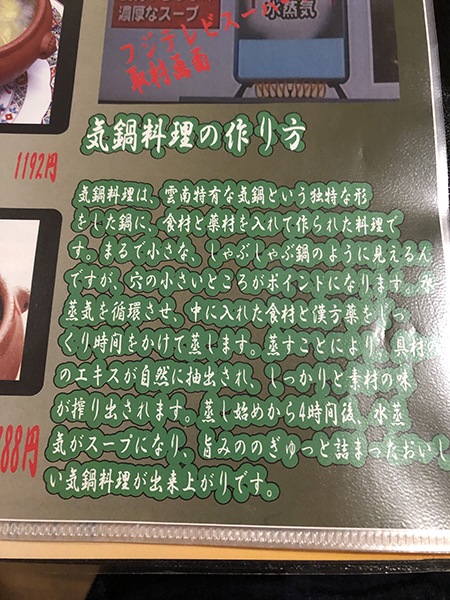 濃厚なスープ
水蒸気
フジテレビスーパー
取材画面
1192円
気鍋料理の作り方
気鍋料理は、雲南特有な気鍋という独特な形
をした鍋に、食材と薬材を入れて作られた料理で
す。まるで小さな、しゃぶしゃぶ鍋のように見えるん
ですが、穴の小さいところがポイントになります。水
蒸気を循環させ、中に入れた食材と漢方薬をじっ
くり時間をかけて蒸します。蒸すことにより、具材の
のエキスが自然に抽出され、しっかりと素材の味
が搾り出されます。蒸し始めから4時間後、水蒸
気がスープになり、旨みののぎゅっと詰まったおいし
い気鍋料理が出来上がりです。
788円